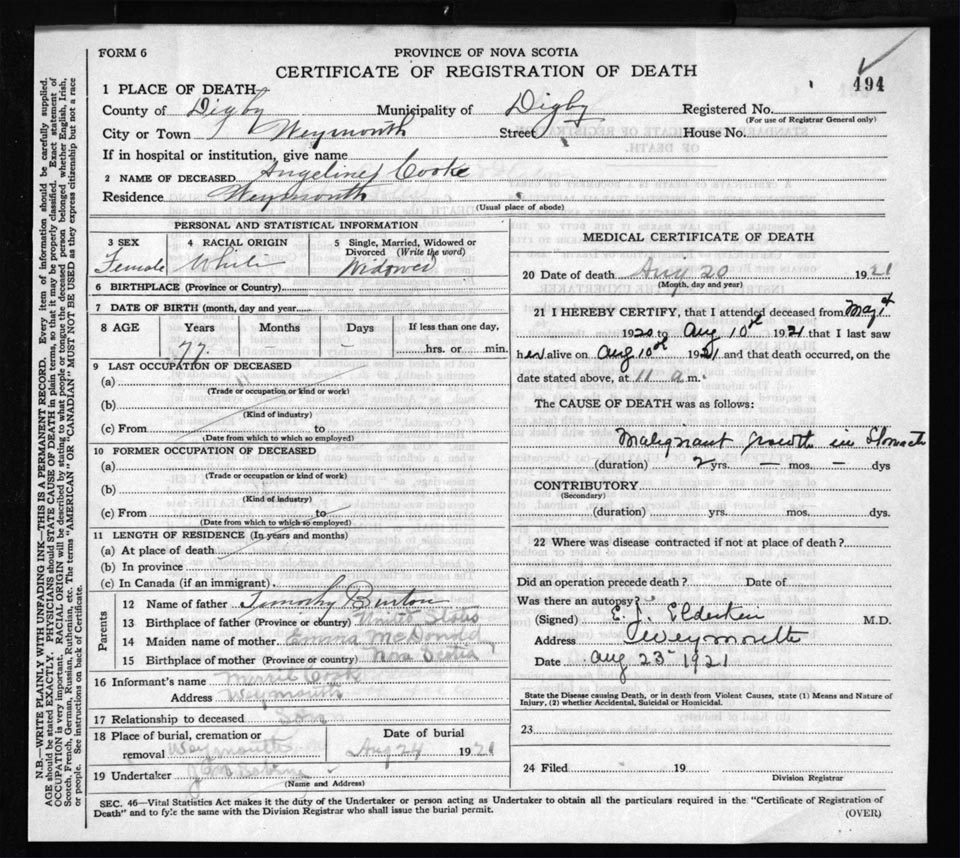 FORM 6
PROVINCE OF NOVA SCOTIA
CERTIFICATE OF REGISTRATION OF DEATH
494
1 PLACE OF DEATH
County of Digby Municipality of Digby Registered No.
(For use of Registrar General only)
City or Town Weymouth Street House No.
If in hospital or institution, give name
2 NAME OF DECEASED Angeline Cooke
Residence Weymouth
(Usual place of abode)
PERSONAL AND STATISTICAL INFORMATION
3 SEX
Female
4 RACIAL ORIGIN
White
5 Single, Married, Widowed or Divorced (Write the word)
Widowed
6 BIRTHPLACE (Province or Country)
7 DATE OF BIRTH (month, day and year)
8 AGE Years Months Days If less than one day,
77 - hrs. or min.
9 LAST OCCUPATION OF DECEASED
(a)
(Trade or occupation or kind of work)
(b)
(Kind of industry)
(c) From to
(Date from which to which so employed)
10 FORMER OCCUPATION OF DECEASED
(a)
(Trade or occupation or kind of work)
(b)
(Kind of industry)
(c) From to
(Date from which to which so employed)
11 LENGTH OF RESIDENCE (In years and months)
(a) At place of death
(b) In province
(c) In Canada (if an immigrant)
Parents
12 Name of father Timothy Burton
13 Birthplace of father (Province or country) United States
14 Maiden name of mother Emma McDonald
15 Birthplace of mother (Province or country) Nova Scotia
16 Informant's name Merril Cook
Address Weymouth
17 Relationship to deceased Son
18 Place of burial, cremation or removal Weymouth
Date of burial
Aug 24 1921
19 Undertaker
(Name and Address)
MEDICAL CERTIFICATE OF DEATH
20 Date of death Aug 20 1921
(Month, day and year)
21 I HEREBY CERTIFY, that I attended deceased from May 1st
1920 to Aug 10th 1921 that I last saw
her alive on Aug 10th 1921 and that death occurred, on the
date stated above, at 11 a m.
The CAUSE OF DEATH was as follows:
Malignant growth in Stomach
(duration) 2 yrs. — mos. — dys
CONTRIBUTORY
(Secondary)
(duration) yrs. mos. dys.
22 Where was disease contracted if not at place of death?
Did an operation precede death? Date of
Was there an autopsy?
(Signed) E. J. Elderkin M.D.
Address Weymouth
Date Aug 23 1921
State the Disease causing Death, or in death from Violent Causes, state (1) Means and Nature of
Injury, (2) whether Accidental, Suicidal or Homicidal.
23
24 Filed 19
Division Registrar
SEC. 46—Vital Statistics Act makes it the duty of the Undertaker or person acting as Undertaker to obtain all the particulars required in the "Certificate of Registration of
Death" and to fyle the same with the Division Registrar who shall issue the burial permit.
(OVER)
N.B.—WRITE PLAINLY WITH UNFADING INK—THIS IS A PERMANENT RECORD. Every item of information should be carefully supplied.
AGE should be stated EXACTLY. PHYSICIANS should STATE CAUSE OF DEATH in plain terms, so that it may be properly classified. Exact statement of
OCCUPATION is very important. RACIAL ORIGIN will be described by stating to what people or tongue the deceased person belonged whether English, Irish,
Scotch, French, German, Russian, Ruthenian, etc. The terms "AMERICAN" OR "CANADIAN" MUST NOT BE USED as they express citizenship but not a race
or people. See instructions on back of Certificate.